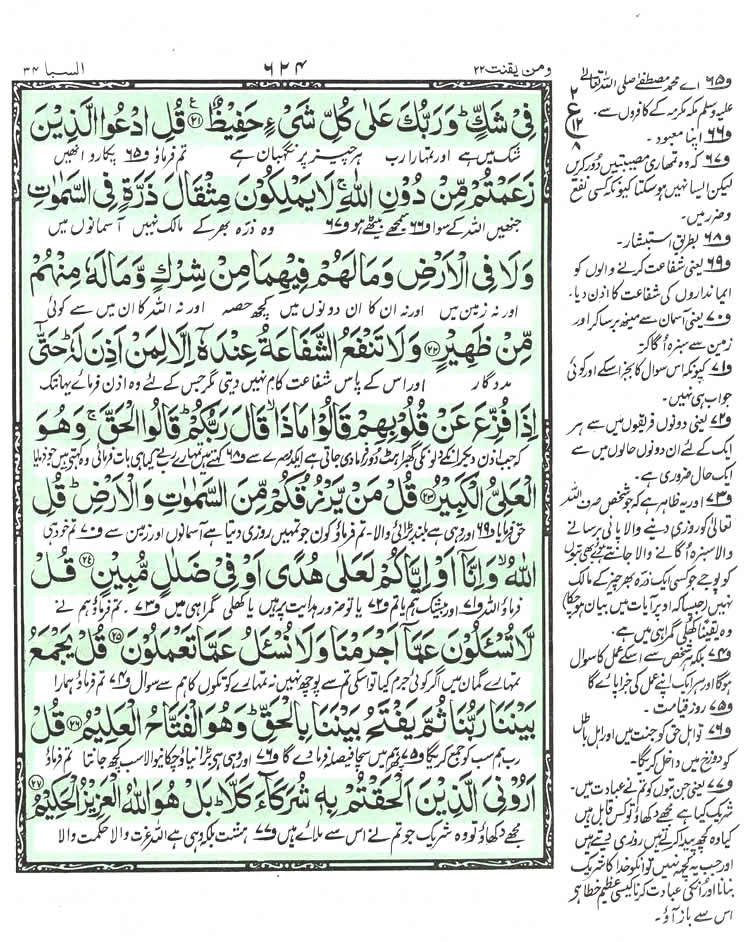 ومن يقنت ٢٢
٦٢٤
السبا ٣٤
فِیْ شَكٍّ ؕ وَ رَبُّكَ عَلٰى كُلِّ شَیْءٍ حَفِیْظٌ ﴿۲۱﴾ قُلِ ادْعُوا الَّذِیْنَ
شک میں ہے اور تمہارا رب ہر چیز پر نگہبان ہے تم فرماؤ و۶۵ پکارو انھیں
زَعَمْتُمْ مِّنْ دُوْنِ اللّٰهِ ۚ لَا یَمْلِكُوْنَ مِثْقَالَ ذَرَّةٍ فِی السَّمٰوٰتِ
جنھیں اللہ کے سوا و۶۶ سمجھے بیٹھے ہو و۶۷ وہ ذرہ بھر کے مالک نہیں آسمانوں میں
وَ لَا فِی الْاَرْضِ وَ مَا لَهُمْ فِیْهِمَا مِنْ شِرْكٍ وَّ مَا لَهٗ مِنْهُمْ
اور نہ زمین میں اور نہ ان کا ان دونوں میں کچھ حصہ اور نہ اللہ کا ان میں سے کوئی
مِّنْ ظَهِیْرٍ ﴿۲۲﴾ وَ لَا تَنْفَعُ الشَّفَاعَةُ عِنْدَهٗۤ اِلَّا لِمَنْ اَذِنَ لَهٗ ؕ حَتّٰۤى
مددگار اور اس کے پاس شفاعت کام نہیں دیتی مگر جس کے لئے وہ اذن فرمائے یہانتک
اِذَا فُزِّعَ عَنْ قُلُوْبِهِمْ قَالُوْا مَا ذَا ۙ قَالَ رَبُّكُمْ ؕ قَالُوا الْحَقَّ ۚ وَ هُوَ
کہ جب اذن دیکر انکے دلونکی گھبراہٹ دور فرمادی جاتی ہے ایکدوسرے سے و۶۸ کہتے ہیں تمہارے رب نے کیا ہی بات فرمائی وہ کہتے ہیں جو فرمایا
الْعَلِیُّ الْكَبِیْرُ ﴿۲۳﴾ قُلْ مَنْ یَّرْزُقُكُمْ مِّنَ السَّمٰوٰتِ وَ الْاَرْضِ ؕ قُلِ
حق فرمایا و۶۹ اور وہی ہے بلند بڑائی والا۔ تم فرماؤ کون جو تمہیں روزی دیتا ہے آسمانوں اور زمین سے و۷۰ تم خود ہی
اللّٰهُ ۙ وَ اِنَّاۤ اَوْ اِیَّاكُمْ لَعَلٰى هُدًى اَوْ فِیْ ضَلٰلٍ مُّبِیْنٍ ﴿۲۴﴾ قُلْ
فرماؤ اللہ و۷۱ اور بیشک ہم یا تم و۷۲ یا تو ضرور ہدایت پر ہیں یا کھلی گمراہی میں و۷۳۔ تم فرماؤ ہم نے
لَّا تُسْـَٔلُوْنَ عَمَّاۤ اَجْرَمْنَا وَ لَا نُسْـَٔلُ عَمَّا تَعْمَلُوْنَ ﴿۲۵﴾ قُلْ یَجْمَعُ
تمہارے گمان میں اگر کوئی جرم کیا تو اسکی تم سے پوچھ نہیں نہ تمہارے کوتکوں کا ہم سے سوال و۷۴ تم فرماؤ ہمارا
بَیْنَنَا رَبُّنَا ثُمَّ یَفْتَحُ بَیْنَنَا بِالْحَقِّ ؕ وَ هُوَ الْفَتَّاحُ الْعَلِیْمُ ﴿۲۶﴾ قُلْ
رب ہم سب کو جمع کریگا و۷۵ پھر ہم میں سچا فیصلہ فرمادے گا و۷۶ اور وہی ہے بڑا نیاؤ چکانیوالا سب کچھ جانتا تم فرماؤ
اَرُوْنِیَ الَّذِیْنَ اَلْحَقْتُمْ بِهٖ شُرَكَآءَ كَلَّا ؕ بَلْ هُوَ اللّٰهُ الْعَزِیْزُ الْحَكِیْمُ ﴿۲۷﴾
مجھے دکھاؤ تو وہ شریک جو تم نے اس سے ملائے ہیں و۷۷ ہشت بلکہ وہی ہے اللہ عزت والا حکمت والا
و۶۵ اے محمد مصطفےٰ صلی اللہ تعالیٰ
علیہ وسلم مکہ مکرمہ کے کافروں سے۔
و۶۶ اپنا معبود۔
و۶۷ کہ وہ تمھاری مصیبتیں دور کریں
لیکن ایسا نہیں ہو سکتا کیونکہ کسی نفع
و ضرر میں۔
و۶۸ بطریق استبشار۔
و۶۹ یعنی شفاعت کرنے والوں کو
ایمانداروں کی شفاعت کا اذن دیا۔
و۷۰ یعنی آسمان سے مینھ برسا کر اور
زمین سے سبزہ اُگا کر۔
و۷۱ کیونکہ اس سوال کا بجز اسکے اور کوئی
جواب ہی نہیں۔
و۷۲ یعنی دونوں فریقوں میں سے ہر
ایک کے لئے ان دونوں حالوں میں سے
ایک حال ضروری ہے۔
و۷۳ اور یہ ظاہر ہے کہ جو شخص صرف اللہ
تعالیٰ کو روزی دینے والا پانی برسانے
والا سبزہ اُگانے والا جانتے ہوئے بھی بتوں
کو پوجے جو کسی ایک ذرہ بھر چیز کے مالک
نہیں (جیسا کہ اوپر آیات میں بیان ہو چکا)
وہ یقیناً کھلی گمراہی میں ہے۔
و۷۴ بلکہ ہر شخص سے اسکے عمل کا سوال
ہوگا اور ہر ایک اپنے عمل کی جزا پائے گا
و۷۵ روز قیامت۔
و۷۶ تو اہل حق کو جنت میں اور اہل باطل
کو دوزخ میں داخل کریگا۔
و۷۷ یعنی جن بتوں کو تم نے عبادت میں
شریک کیا ہے مجھے دکھاؤ تو کس قابل ہیں
کیا وہ کچھ پیدا کرتے ہیں روزی دیتے ہیں
اور جب یہ کچھ نہیں تو انکو خدا کا شریک
بنانا اور انکی عبادت کرنا کیسی عظیم خطا ہے
اس سے باز آؤ۔